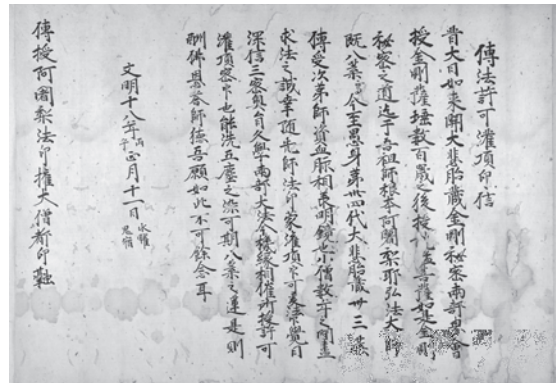 傳法許可灌頂印信
昔大日如来開大悲胎蔵金剛秘密両部界會
授金剛薩埵数百歳之後授菩薩如是金剛
秘密之道迄于吾祖師根本阿闍梨耶弘法大師
既八葉焉今至愚身第卅四代大悲胎蔵卅三葉
傳受次第師資血脉相承明鏡也小僧数年之間盡
求法之誠幸随先師法印蒙灌頂印可爰法覺
深信三密奥旨久學両部大法今機縁相催所授許可
灌頂密印也能洗五塵之染可期八葉之蓮是則
酬佛恩荅師德吾願如此不可餘念耳
文明十八年丙午正月十一日水曜鬼宿
傳授阿闍梨法印權大僧都印融